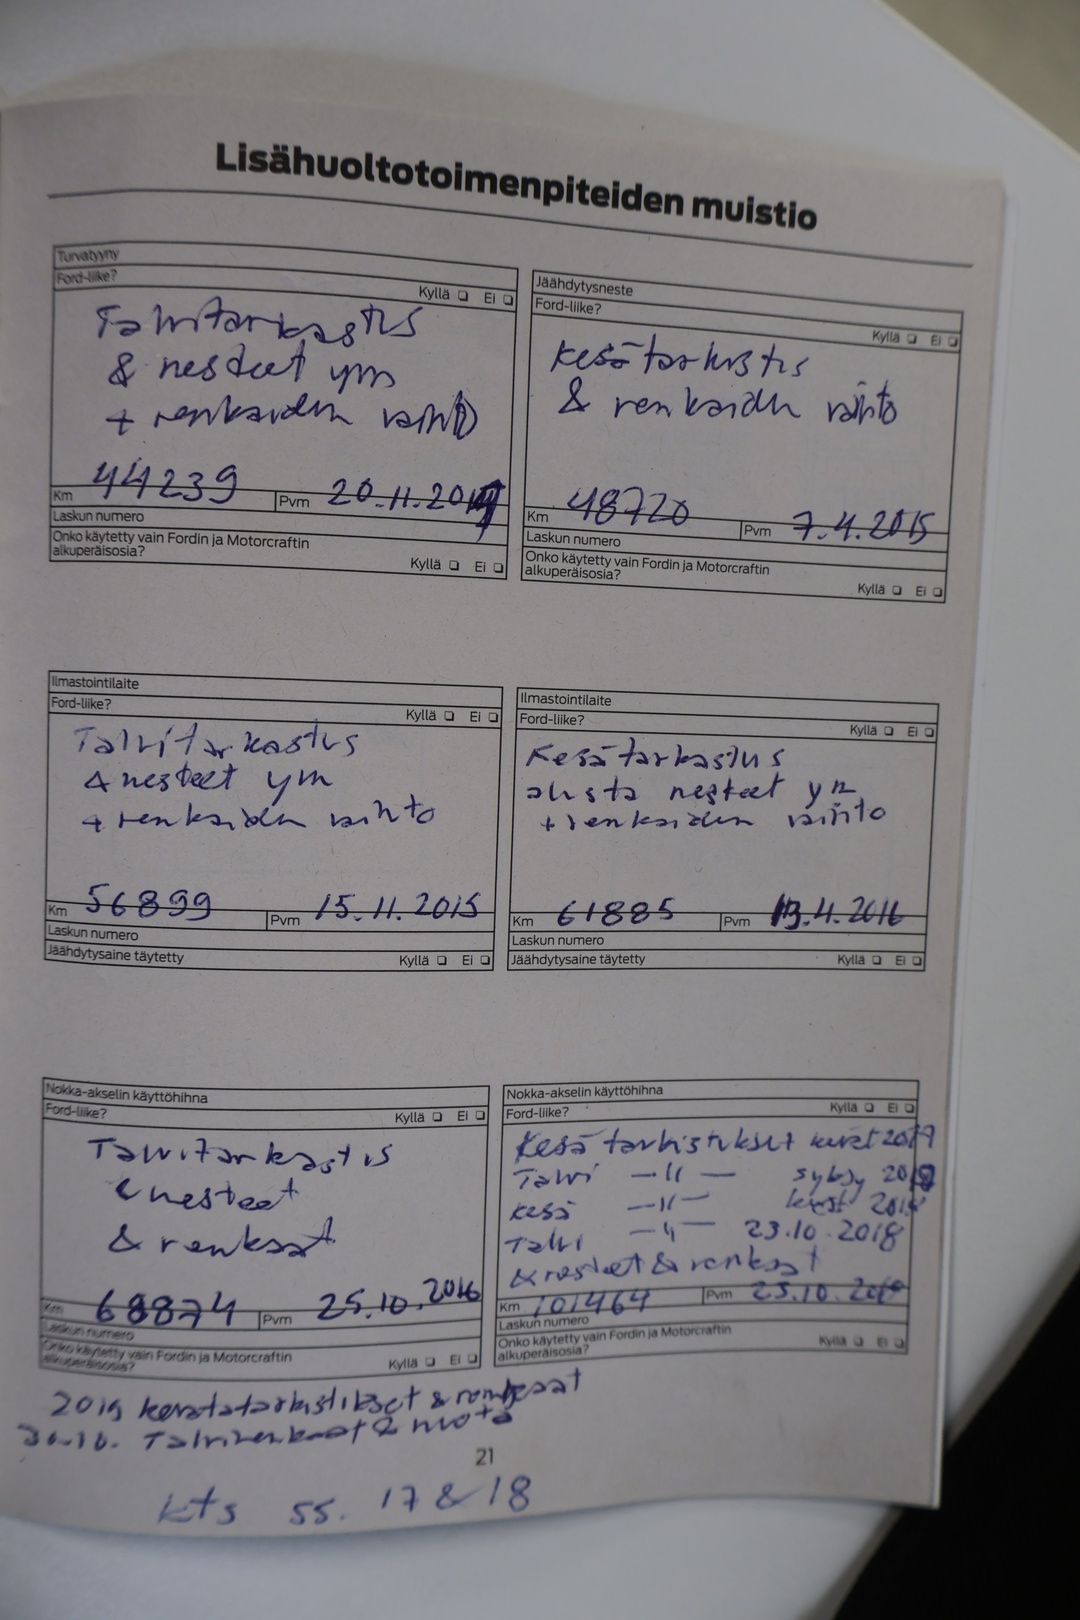 Lisähuoltotoimenpiteiden muistio
Turvatyyny
Ford-liike?
Kyllä Ei
Talvitarkastus
& nesteet ym
+ renkaiden vaihto
Km 44239 Pvm 20.11.2014
Laskun numero
Onko käytetty vain Fordin ja Motorcraftin
alkuperäisosia?
Kyllä Ei
Jäähdytysneste
Ford-liike?
Kyllä Ei
Kesätarkastus
& renkaiden vaihto
Km 48720 Pvm 7.4.2015
Laskun numero
Onko käytetty vain Fordin ja Motorcraftin
alkuperäisosia?
Kyllä Ei
Ilmastointilaite
Ford-liike?
Kyllä Ei
Talvitarkastus
& nesteet ym
+ renkaiden vaihto
Km 56899 Pvm 15.11.2015
Laskun numero
Jäähdytysaine täytetty Kyllä Ei
Ilmastointilaite
Ford-liike?
Kyllä Ei
Kesätarkastus
alusta nesteet ym
+ renkaiden vaihto
Km 61885 Pvm 13.4.2016
Laskun numero
Jäähdytysaine täytetty Kyllä Ei
Nokka-akselin käyttöhihna
Ford-liike?
Kyllä Ei
Talvitarkastus
& nesteet
& renkaat
Km 68874 Pvm 25.10.2016
Laskun numero
Onko käytetty vain Fordin ja Motorcraftin
alkuperäisosia?
Kyllä Ei
Nokka-akselin käyttöhihna
Ford-liike?
Kyllä Ei
Kesätarkistukset
Talvi —〃— syksy
Kesä —〃—
Talvi —〃— 23.10.2018
& nesteet & renkaat
Km 101464 Pvm
Laskun numero
Onko käytetty vain Fordin ja Motorcraftin
alkuperäisosia?
Kyllä Ei
2019 & renkaat
Talvirenkaat &
21
kts ss. 17 & 18